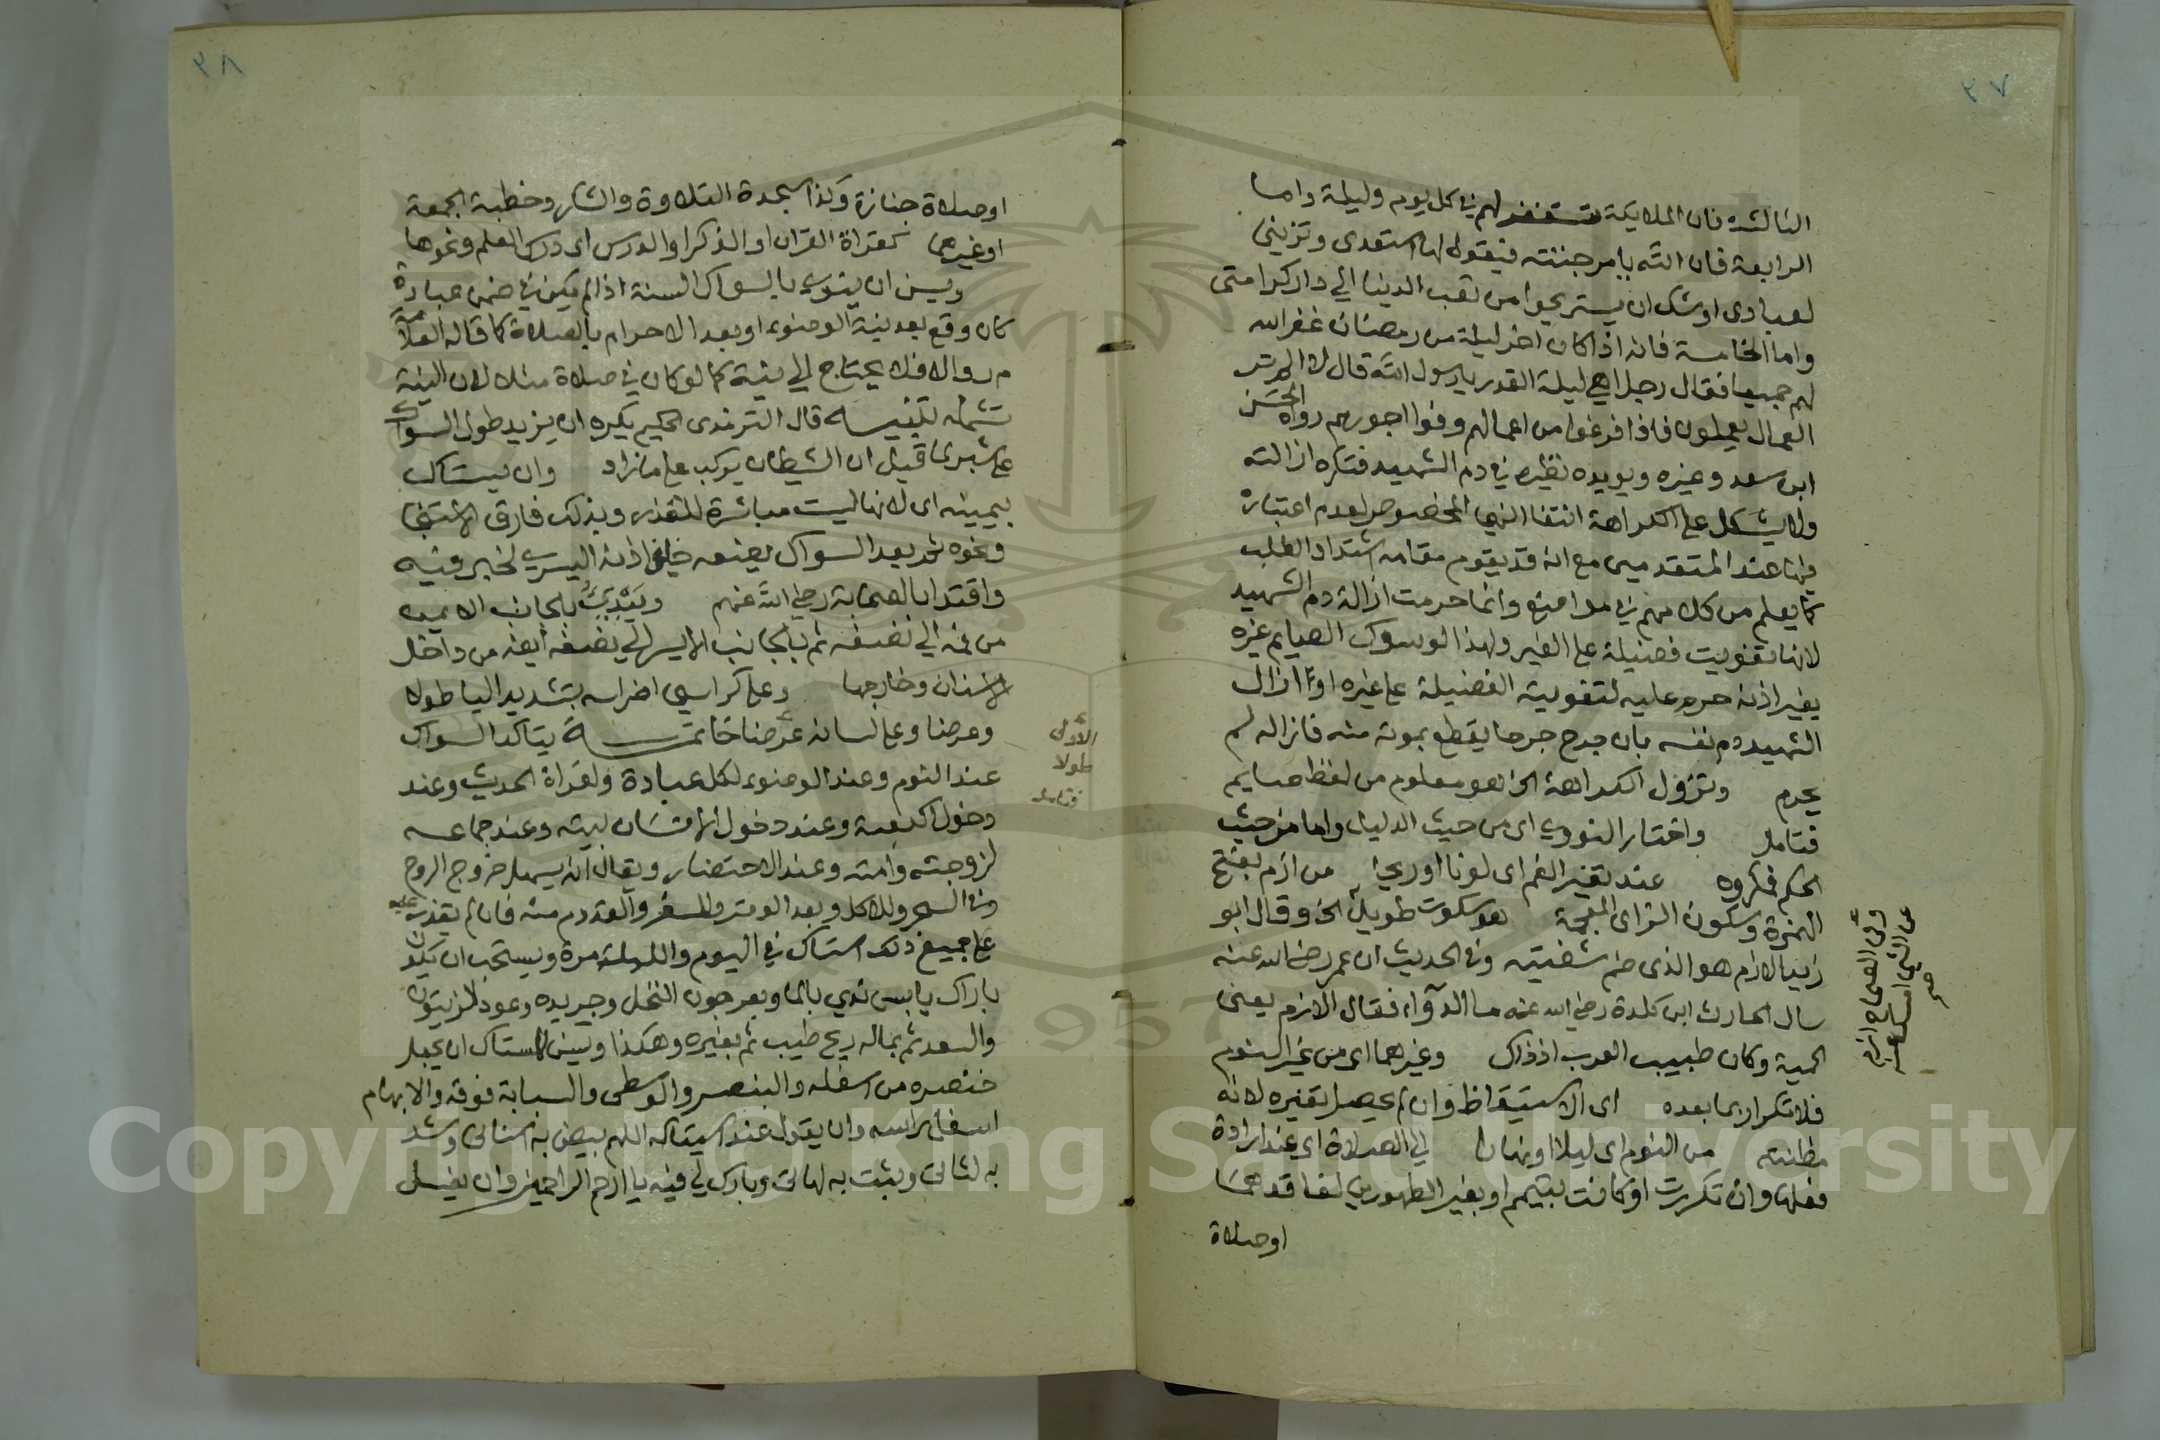 ٣٧
الثالثة فان الملايكة تستغفر لهم في كل يوم وليلة واما
الرابعة فان الله يامر جنته فيقول لها استعدى وتزيني
لعبادى اوشك ان يستريحوا من تعب الدنيا الي دار كرامتى
واما الخامسة فانه اذا كان اخر ليلة من رمضان غفر الله
لهم جميعا فقال رجل اهي ليلة القدر يا رسول الله قال لا الم تر
العمال يعملون فاذا فرغوا من اعمالهم وفوا اجورهم رواه الحسن
ابن سعد وغيره ويويده نظيره في دم الشهيد فتكره ازالته
ولا يشكل على الكراهة انتفا النهي المخصوص لعدم اعتباره
فيها عند المتقدمين مع انه قد يقوم مقامه اشتداد الطلب
كما يعلم من كلامهم في مواضع وانما حرمت ازالة دم الشهيد
لانها تفويت فضيلة على الغير ولهذا لو سوك الصايم غيره
بغير اذنه حرم عليه لتفويته الفضيلة على غيره او ازال
الشهيد دم نفسه بان جرح جرحا يقطع بموته منه فازاله لم
يحرم وتزول الكراهة الخ هو معلوم من لفظ صايم
فتامل واختار النووي اى من حيث الدليل واما من حيث
الحكم فمكروه عند تغير الفم اى لونا او ريحا من ازم بفتح
الهمزة وسكون الزاى المعجمة هو سكوت طويل الخ وقال ابو
زيد الازم هو الذى ضم شفتيه وفي الحديث ان عمر رضي الله عنه
سال الحارث ابن كلدة رضي الله عنه ما الدوآء فقال الازم يعنى
الحمية وكان طبيب العرب اذ ذاك وغيرهما اى من غير النوم
فلا تكرار بما بعده اى الاستيقاظ وان لم يحصل تغيره لانه
مظنته من النوم اى ليلا او نهارا الي الصلاة اي عند ارادة
فعلها وان تكررت او كانت بتيمم او بغير الطهورين لفاقدهما
او صلاة
وفى الصحاح ازم
عن الشئ امسك عنه
٣٨
او صلاة جنازة وكذا سجدة التلاوة والشكر وخطبة الجمعة
او غيرهما كقراة القران او الذكر او الدرس اى درس العلم ونحوها
ويسن ان ينوي بالسواك السنة اذا لم يكن في ضمن عبادة
كان وقع بعد نية الوضوء او بعد الاحرام بالصلاة كما قاله العلامة
م ر والا فلا يحتاج الي نية كما لو كان في صلاة مثلا لان النية
تشمله تنبيه قال الترمذى الحكيم يكره ان يزيد طول السواك
على شبر لما قيل ان الشيطان يركب على ما زاد وان يستاك
بيمينه اى لانها ليست مباشرة للقذر وبذلك فارق الاستنجا
ونحوه ثم بعد السواك يضعه خلف اذنه اليسري لخبر فيه
واقتدا بالصحابة رضي الله عنهم ويبتدئ بالجانب الايمن
من فمه الي نصفه ثم بالجانب الايسر الي نصفه ايضه من داخل
الاسنان وخارجها وعلى كراسي اضراسه بتشديد اليا طولا
وعرضا وعلى لسانه عرضا خاتمة يتاكد السواك
عند النوم وعند الوضوء لكل عبادة ولقراة الحديث وعند
دخول الكعبة وعند دخول الانسان لبيته وعند جماعه
لزوجته وامته وعند الاحتضار ويقال انه يسهل خروج الروح
وفي السحر وللاكل وبعد الوتر وللسفر والقدوم منه فان لم يقدر عليه
على جميع ذلك استاك في اليوم والليلة مرة ويستحب ان يكون
باراك يابس ندي بالما وبعرجون النخل وجريده وعود الزيتون
والسعد ثم بماله ريح طيب ثم بغيره وهكذا ويسن للمستاك ان يجعل
خنصره من اسفله والبنصر والوسطى والسبابة فوقه والابهام
اسفل راسه وان يقول عند استياكه اللهم بيض به اسنانى وشد
به لثاتى وثبت به لهاتى وبارك لي فيه يا ارحم الراحمين وان يغسل
طولا
Copyright © King Saud University
1957